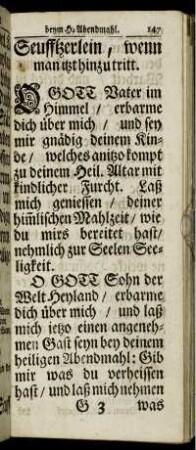 beym H. Abendmahl. 147
Seufftzerlein, wenn
man itzt hinzu tritt.
O GOTT Vater im
Himmel / erbarme
dich über mich / und sey
mir gnädig deinem Kin-
de / welches anitzo kompt
zu deinem Heil. Altar mit
kindlicher Furcht. Laß
mich geniessen / deiner
himlischen Mahlzeit / wie
du mirs bereitet hast /
nehmlich zur Seelen See-
ligkeit.
O GOTT Sohn der
Welt Heyland / erbarme
dich über mich / und laß
mich jetzo einen angeneh-
men Gast seyn bey deinem
heiligen Abendmahl: Gib
mir was du verheissen
hast / und laß mich nehmen
G 3 was